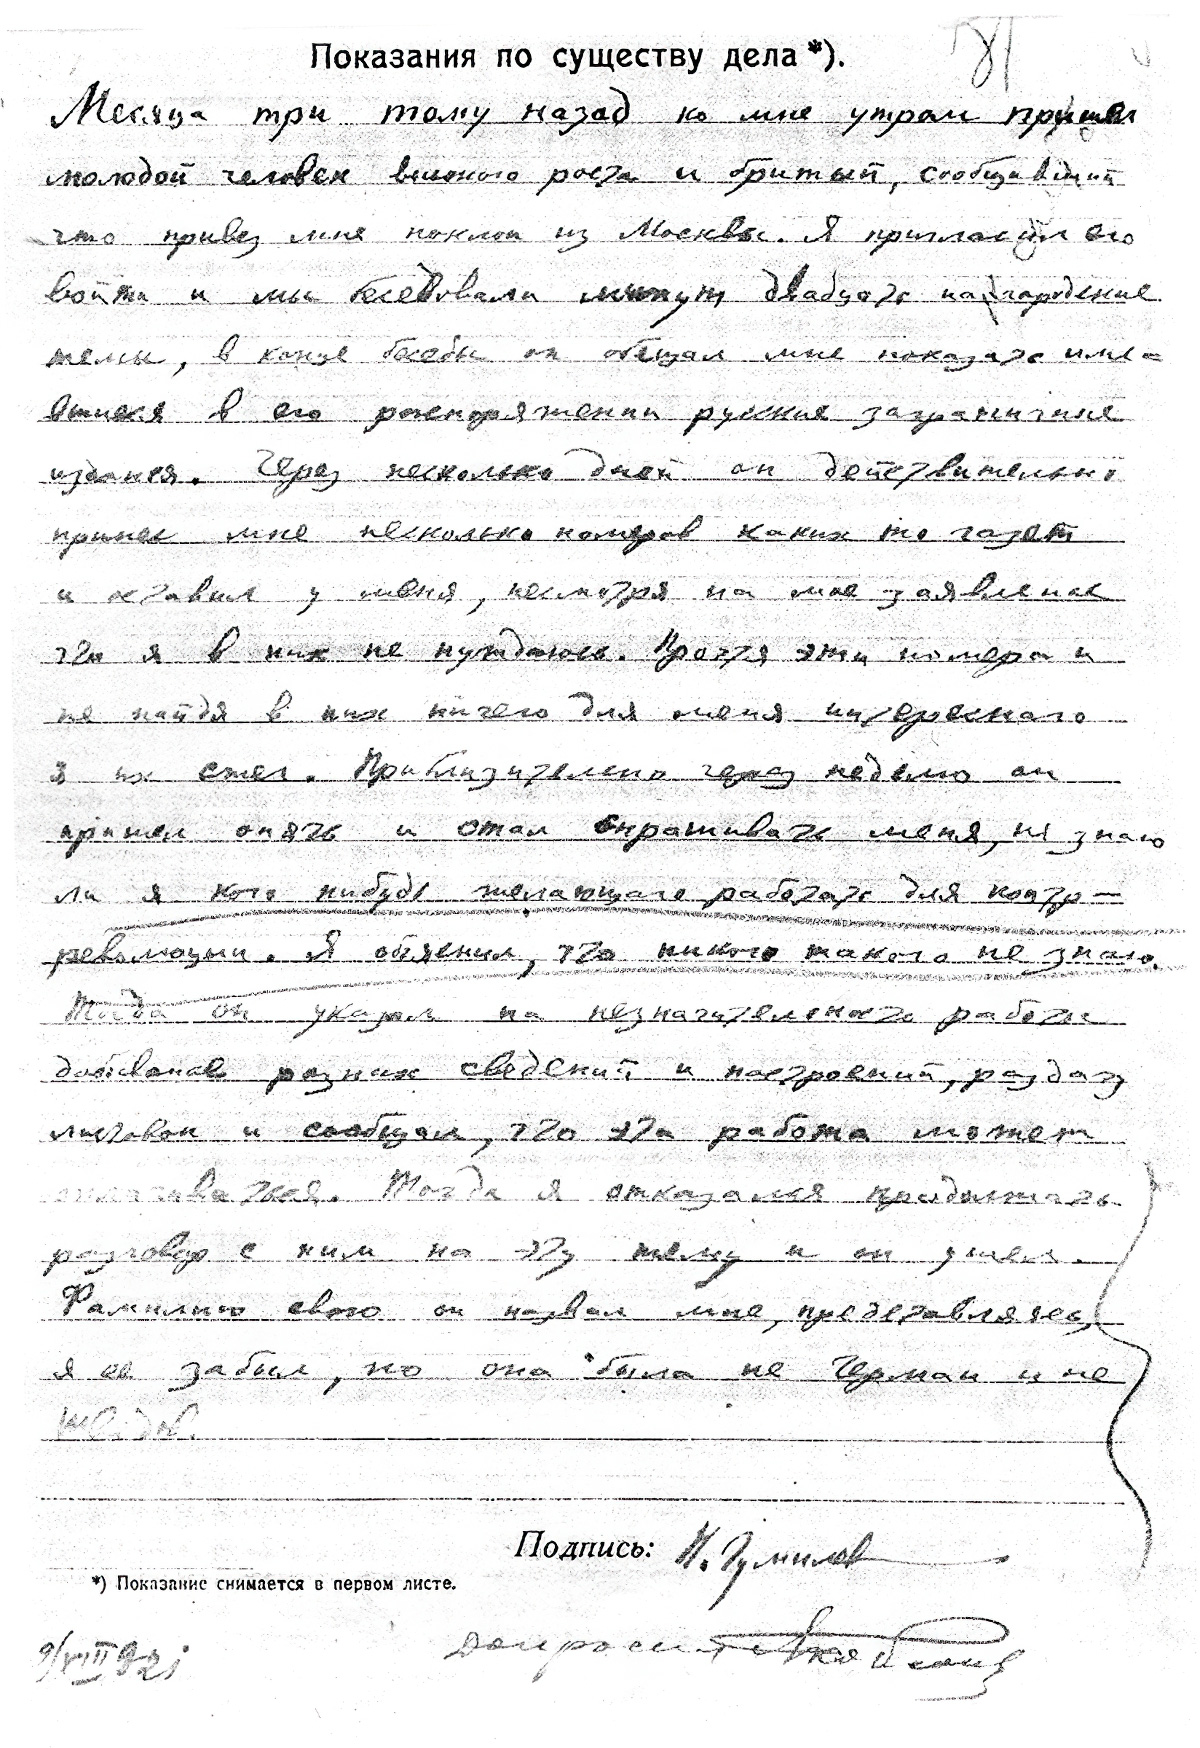 Показания по существу дела*).
81
Месяца три тому назад ко мне утром пришел
молодой человек высокого роста и бритый, сообщивший
что привез мне поклон из Москвы. Я пригласил его
войти и мы беседовали минут двадцать на городские
темы, в конце беседы он обещал мне показать име-
вшиеся в его распоряжении русские заграничные
издания. Через несколько дней он действительно
принес мне несколько номеров каких то газет
и оставил у меня, несмотря на мое заявление
что я в них не нуждаюсь. Прочтя эти номера и
не найдя в них ничего для меня интересного
я их сжег. Приблизительно через неделю он
пришел опять и стал спрашивать меня, не знаю
ли я кого нибудь желающего работать для контр-
революции. Я объяснил, что никого такого не знаю.
Тогда он указал на незначительность работы
добывание разных сведений и настроений, раздачу
листовок и сообщал, что эта работа может
оплачиваться. Тогда я отказался продолжать
разговор с ним на эту тему и он ушел.
Фамилию свою он назвал мне, представляясь,
я ее забыл, но она была не Герман и не
Шведов.
Подпись: Н. Гумилев
*) Показание снимается в первом листе.
9/VIII 921
допросил Якобсон